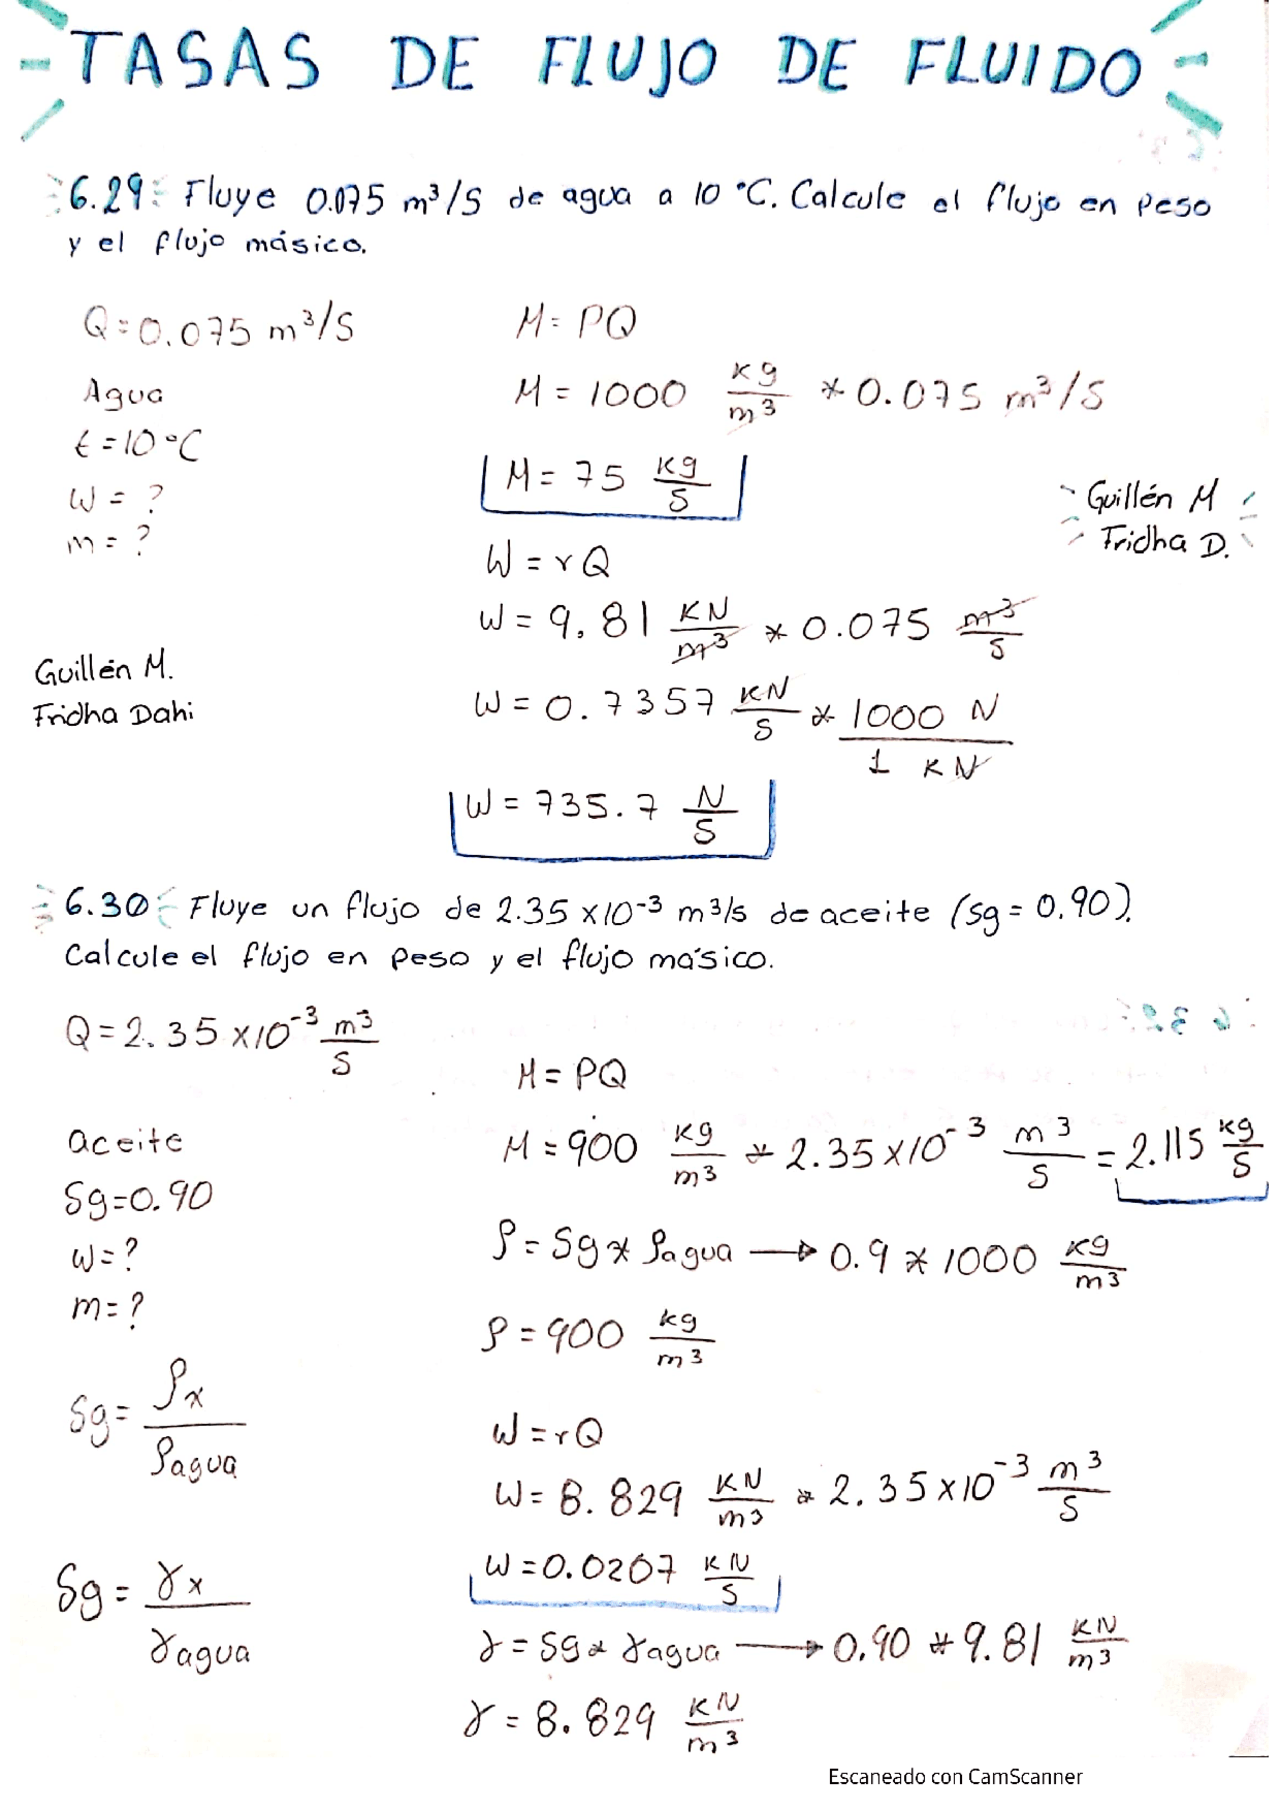 TASAS DE FLUJO DE FLUIDO
6.29 Fluye 0.075 m³/s de agua a 10 °C. Calcule el flujo en peso
y el flujo másico.
Q = 0.075 m³/s
Agua
t = 10 °C
W = ?
m = ?
Guillén M.
Fridha Dahi
M = PQ
M = 1000 kg/m³ * 0.075 m³/s
M = 75 kg/s
W = rQ
W = 9.81 KN/m³ * 0.075 m³/s
W = 0.7357 KN/s * 1000 N / 1 KN
W = 735.7 N/s
Guillén M
Fridha D.
6.30 Fluye un flujo de 2.35 x10⁻³ m³/s de aceite (sg = 0.90).
Calcule el flujo en peso y el flujo másico.
Q = 2.35 x10⁻³ m³/s
aceite
Sg = 0.90
W = ?
m = ?
Sg = ρx / ρagua
Sg = γx / γagua
M = PQ
M = 900 kg/m³ * 2.35 x10⁻³ m³/s = 2.115 kg/s
ρ = Sg * ρagua → 0.9 * 1000 kg/m³
ρ = 900 kg/m³
W = rQ
W = 8.829 KN/m³ * 2.35 x10⁻³ m³/s
W = 0.0207 KN/s
γ = Sg * γagua → 0.90 * 9.81 KN/m³
γ = 8.829 KN/m³
Escaneado con CamScanner